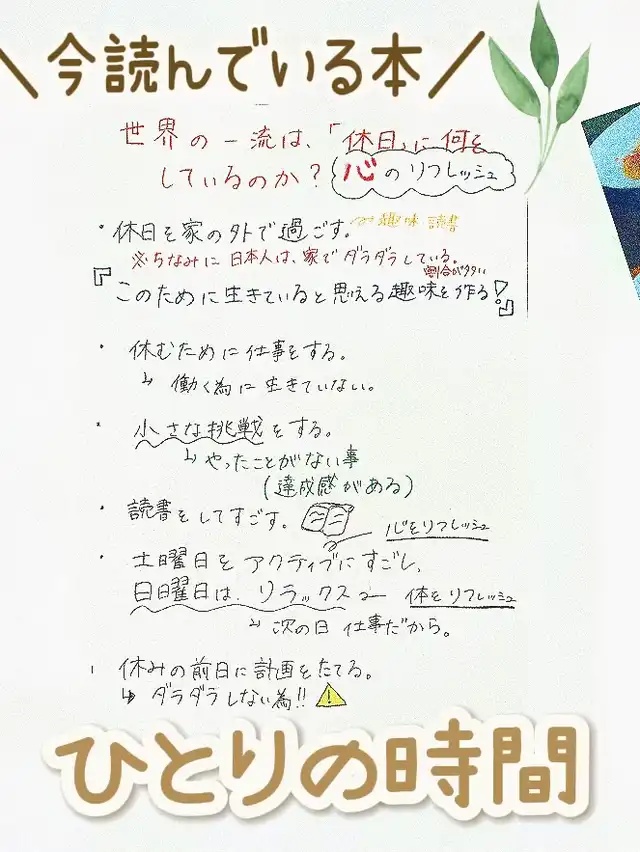 ＼今読んでいる本／
世界の一流は、「休日」に何を
しているのか？ 心のリフレッシュ
・休日を家の外で過ごす。 趣味 読書
※ちなみに日本人は、家でダラダラしている。
割合が多い
『このために生きていると思える趣味を作る！』
・休むために仕事をする。
↳ 働く為に生きていない。
・小さな挑戦をする。
↳ やったことがない事
(達成感がある)
・読書をしてすごす。
心をリフレッシュ
・土曜日をアクティブにすごし、
日曜日は、リラックス 体をリフレッシュ
↳ 次の日 仕事だから。
・休みの前日に計画をたてる。
↳ ダラダラしない為!! ⚠
ひとりの時間